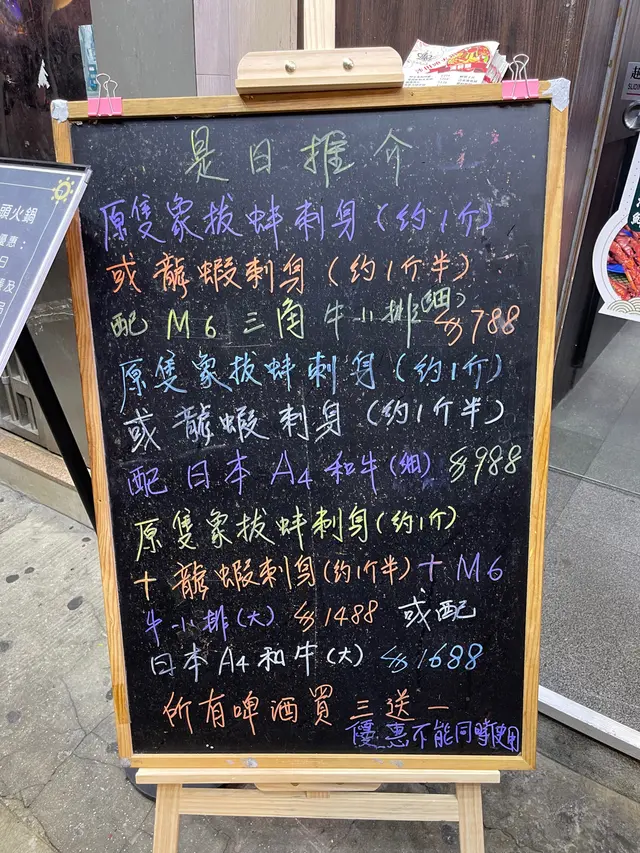 是日推介
原隻象拔蚌刺身(約1介)
或龍蝦刺身(約1介半)
配M6三角牛小排(細)$788
原隻象拔蚌刺身(約1介)
或龍蝦刺身(約1介半)
配日本A4和牛(細)$988
原隻象拔蚌刺身(約1介)
+龍蝦刺身(約1介半)+M6
牛小排(大)$1488 或配
日本A4和牛(大)$1688
所有啤酒買三送一
優惠不能同時使用
頭火鍋
優惠:
日